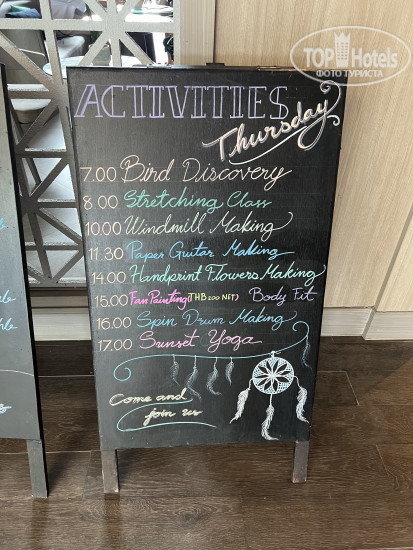 TOP Hotels
ФОТО ТУРИСТА
ACTIVITIES
Thursday
7.00 Bird Discovery
8.00 Stretching Class
10.00 Windmill Making
11.30 Paper Guitar Making
14.00 Handprint Flowers Making
15.00 Fan Painting (THB 200 NET) Body Fit
16.00 Spin Drum Making
17.00 Sunset Yoga
Come and
join us